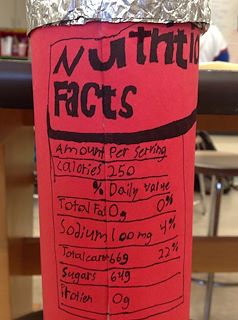 Nutritio
Facts
Amount Per Serving
Calories 250
% Daily Value
Total Fat 0g 0%
Sodium 100mg 4%
Total carb 66g 22%
Sugars 64g
Protien 0g